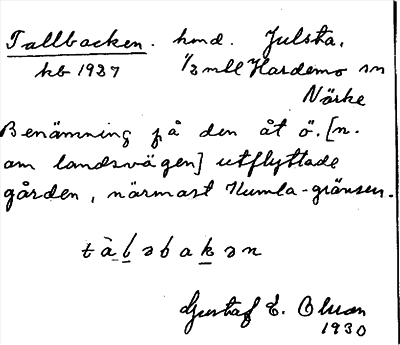 Tallbacken. hmd. Julsta,
kb 1937 1/2 mtl Hardemo sn
Närke
Benämning på den åt ö. [n.
om landsvägen] utflyttade
gården, närmast Kumla-gränsen.
tàləbakən
Gustaf E. Olsson
1930